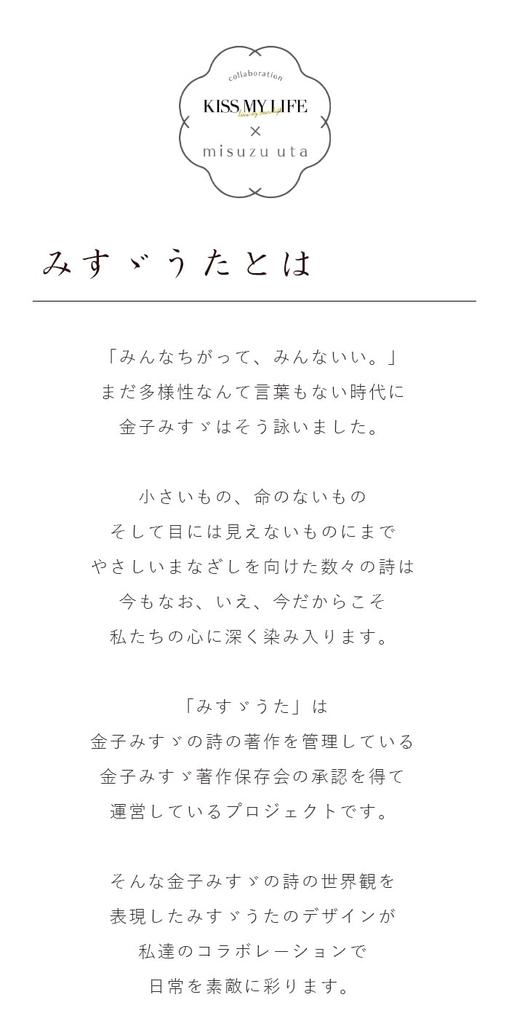 collaboration
KISS MY LIFE
×
misuzu uta
みすゞうたとは
「みんなちがって、みんないい。」
まだ多様性なんて言葉もない時代に
金子みすゞはそう詠いました。
小さいもの、命のないもの
そして目には見えないものにまで
やさしいまなざしを向けた数々の詩は
今もなお、いえ、今だからこそ
私たちの心に深く染み入ります。
「みすゞうた」は
金子みすゞの詩の著作を管理している
金子みすゞ著作保存会の承認を得て
運営しているプロジェクトです。
そんな金子みすゞの詩の世界観を
表現したみすゞうたのデザインが
私達のコラボレーションで
日常を素敵に彩ります。